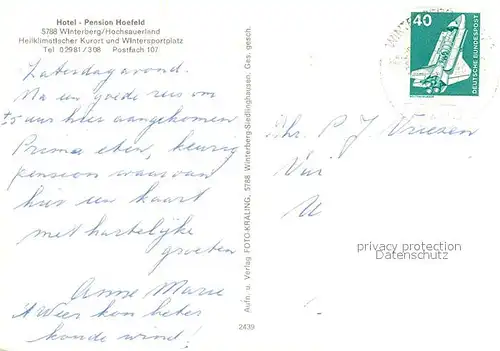 Hotel - Pension Hoefeld
5788 Winterberg/Hochsauerland
Heilklimatischer Kurort und Wintersportplatz
Tel 02981/308 Postfach 107
Zaterdagavond.
Na een goede reis om
±5 uur hier aangekomen
Prima eten, keurig
pension waarvan
hier een kaart
met hartelijke
groeten
Anne Marie
't Weer kon beter
koude wind!
Aufn. u. Verlag FOTO-KRALING, 5788 Winterberg-Siedlinghausen. Ges. gesch.
2439
40
DEUTSCHE BUNDESPOST
WINTERBERG
P J Vriezen
privacy protection
AKPOOL.DE